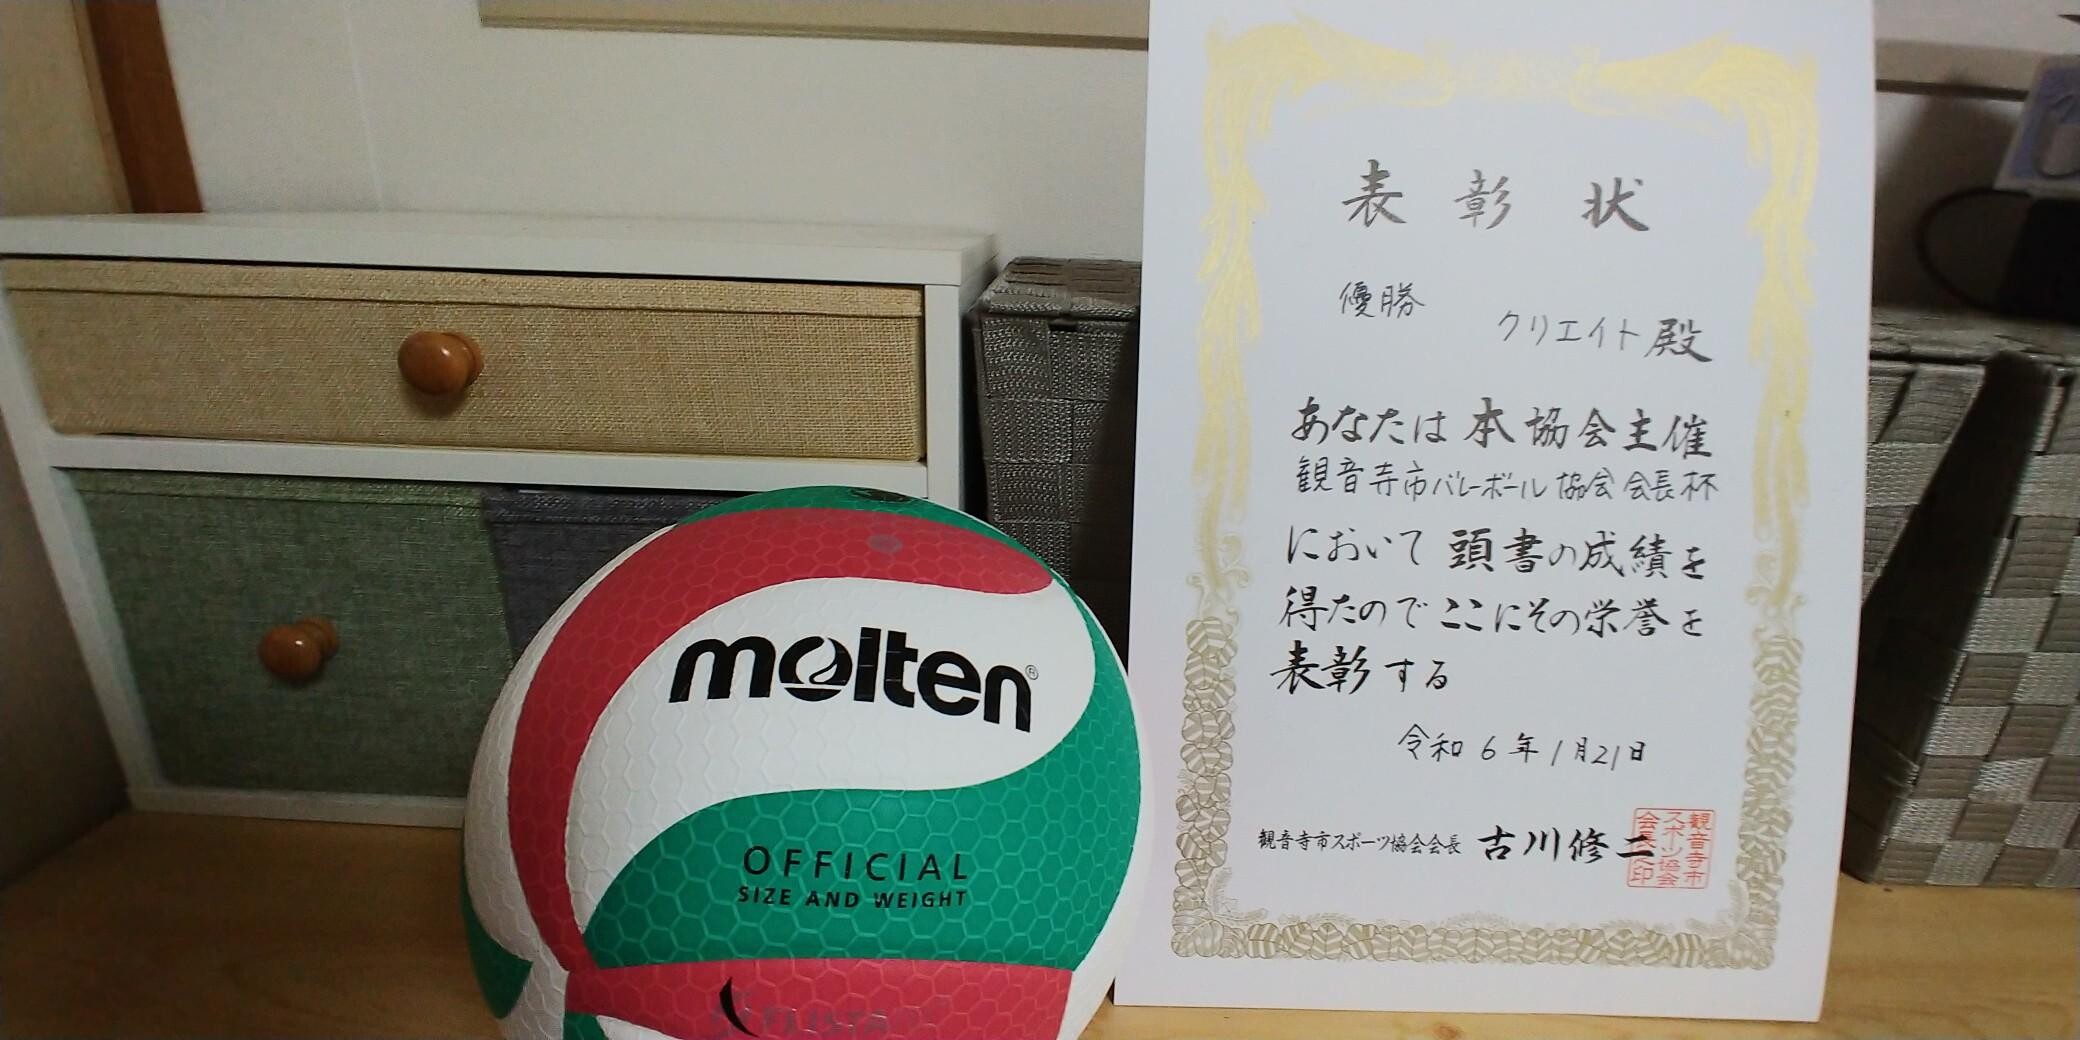 molten®
OFFICIAL
SIZE AND WEIGHT
FLISTATEC
表彰状
優勝
クリエイト殿
あなたは本協会主催
観音寺市バレーボール協会会長杯
において頭書の成績を
得たのでここにその栄誉を
表彰する
令和6年1月21日
観音寺市スポーツ協会会長 古川修二
観音寺市
スポーツ協会
会長之印